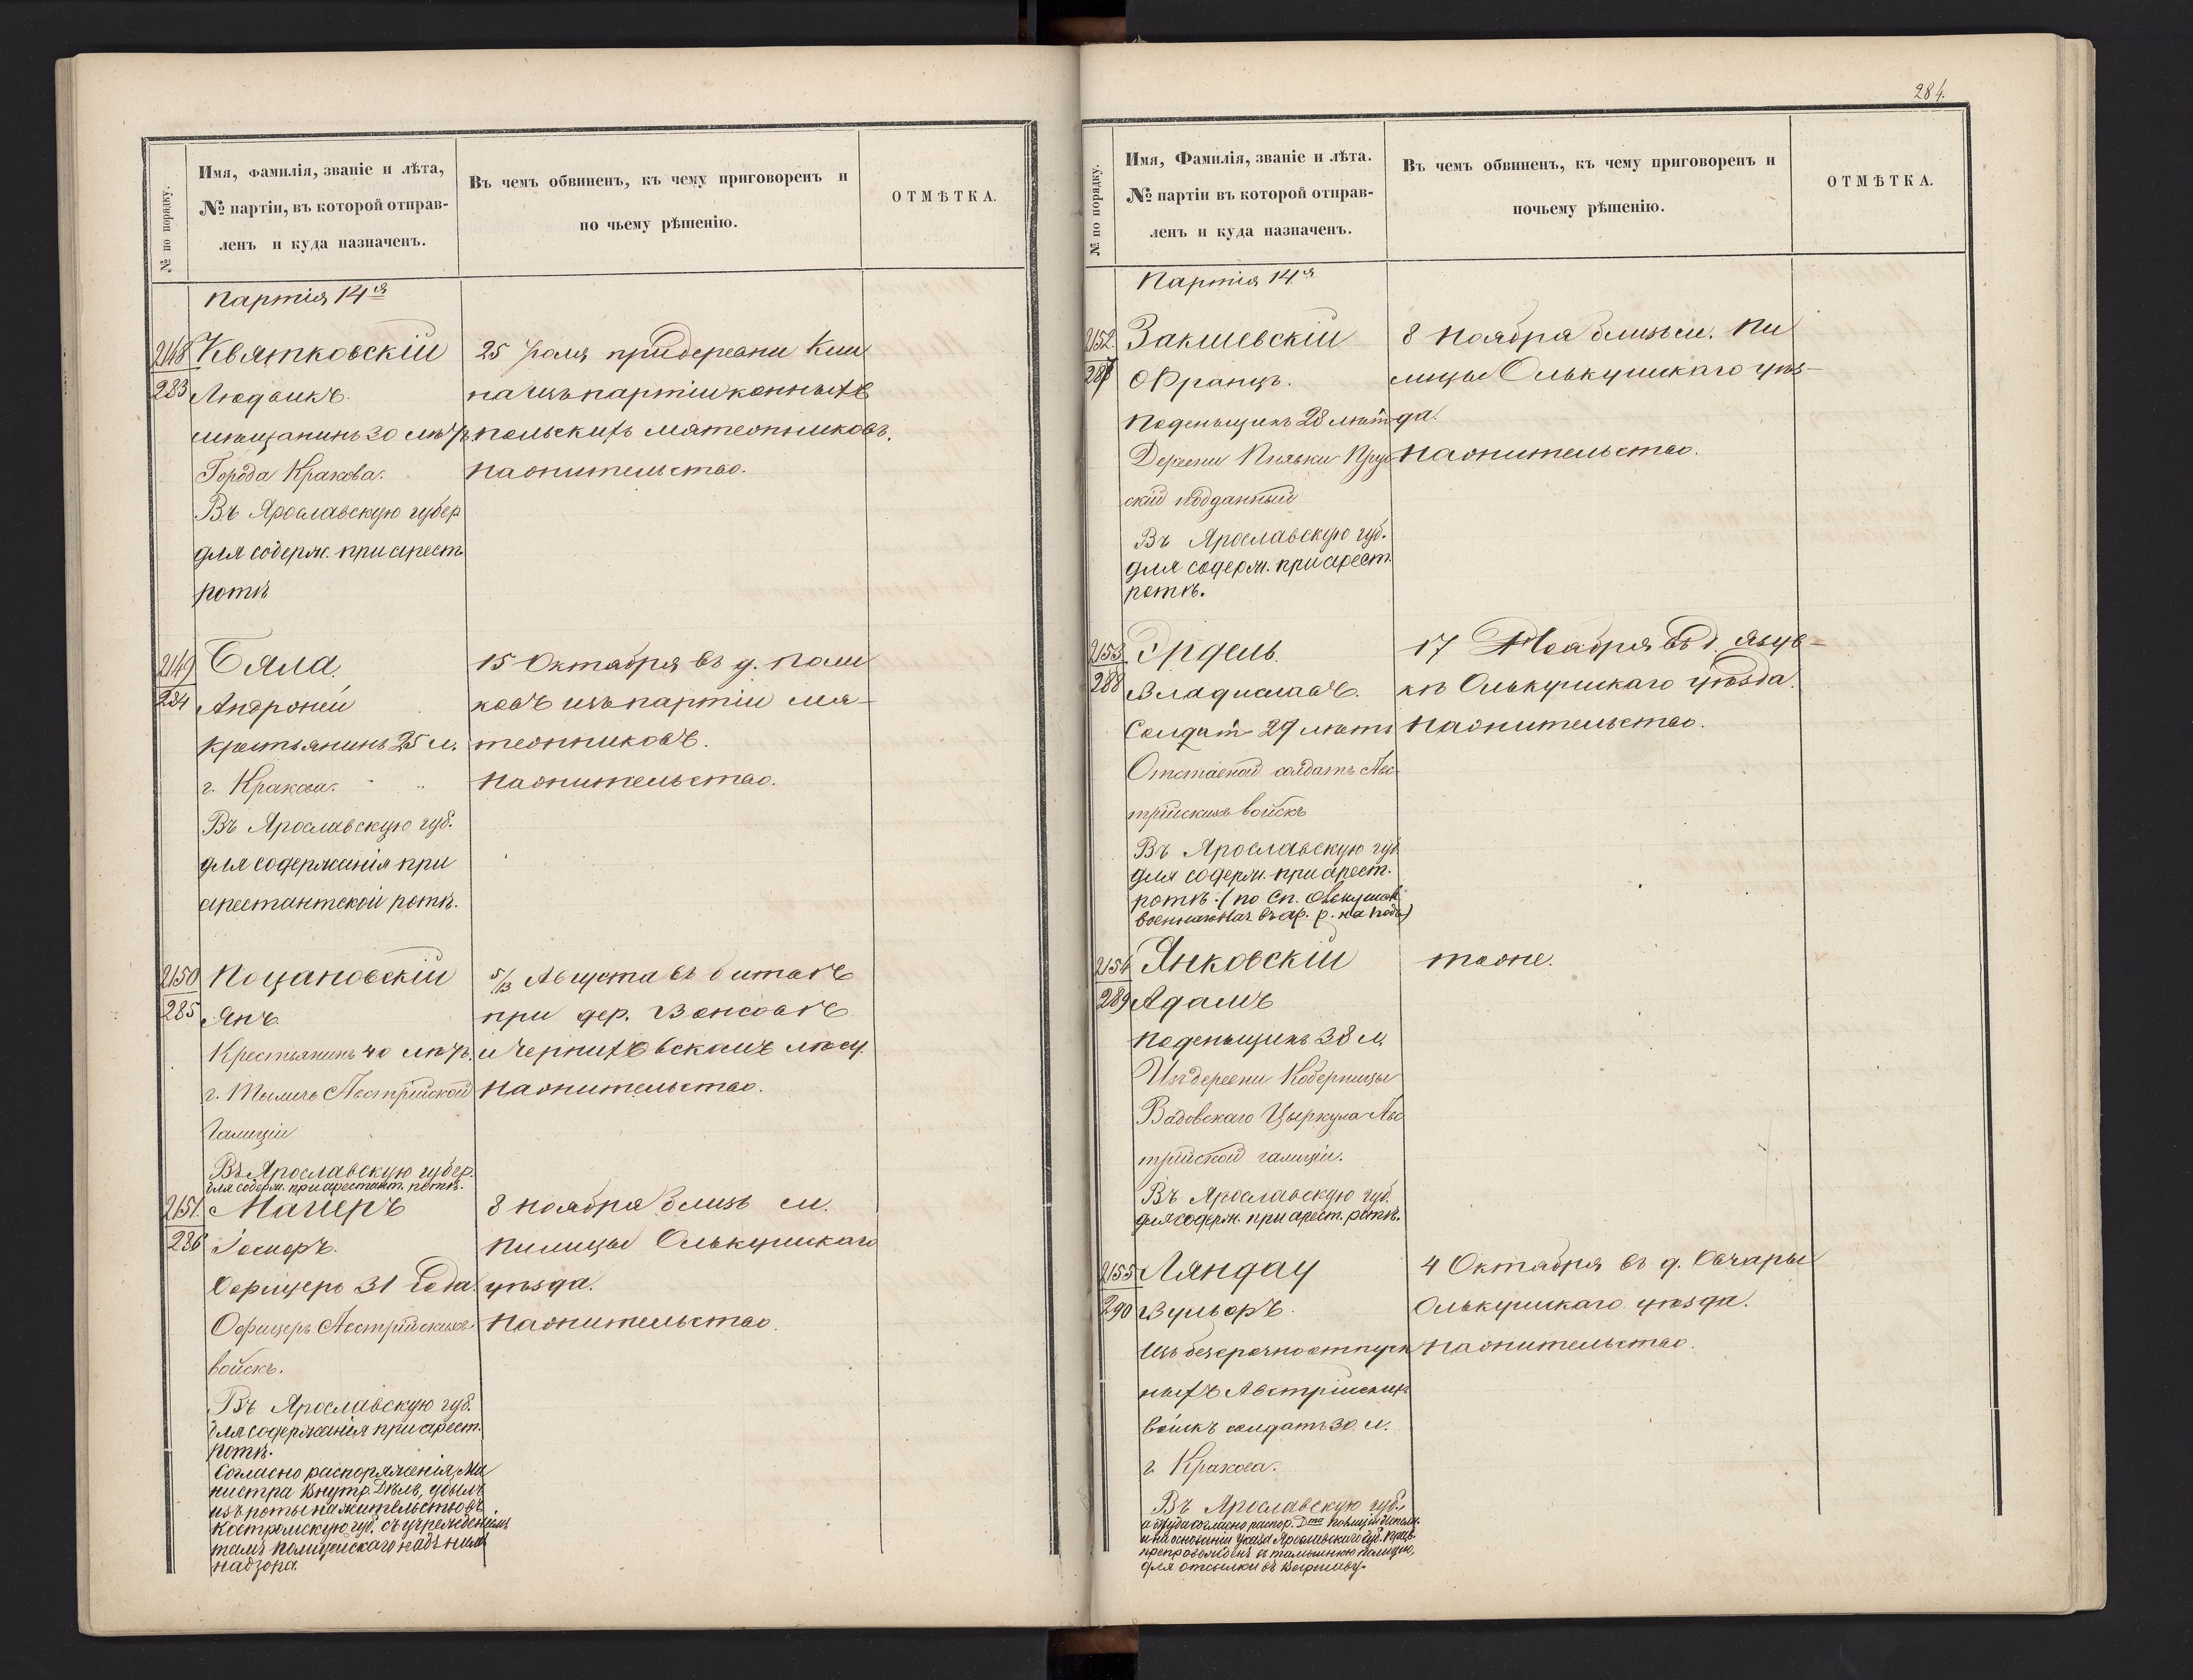 284.
№ по порядку.
Имя, фамилія, званіе и лѣта,
№ партіи, въ которой отправ-
ленъ и куда назначенъ.
Въ чемъ обвиненъ, къ чему приговоренъ и
по чьему рѣшенію.
ОТМѢТКА.
Партія 14я
2148
283
Квятковскій
Людвикъ.
мѣщанинъ 30 лѣтъ
Города Кракова.
Въ Ярославскую губер
для содерж. при арест
ротѣ
25 Іюля при деревни
на изъ партіи конныхъ
польскихъ мятежниковъ.
На жительство.
2149
284
Бяла
Андроней
крестьянинъ 25 л.
г. Кракова.
Въ Ярославскую губ.
для содержанія при
арестантской ротѣ.
15 Октября въ д. Поли
ковъ изъ партіи мя-
тежниковъ.
На жительство.
2150
285
Поцановскій
Янъ
Крестьянинъ 40 лѣтъ
г. Австрійской
Галиціи
Въ Ярославскую губер.
для содерж. при арестант. ротѣ.
5/13 Августа въ битвѣ
при дер.
и лѣсу.
На жительство.
2151.
286
Магеръ
Іосифъ.
Офицеръ 31 года.
Офицеръ Австрійскихъ
войскъ.
Въ Ярославскую губ.
для содержанія при арест.
ротѣ.
Согласно распоряженія Ми
нистра Внутр. Дѣлъ, убылъ
изъ роты на жительство въ
Костромскую губ. съ учрежденіемъ
тамъ полицейскаго надъ нимъ
надзора.
8 Ноября близь м.
Пилицы Олькушскаго
уѣзда.
На жительство.
№ по порядку.
Имя, Фамилія, званіе и лѣта.
№ партіи въ которой отправ-
ленъ и куда назначенъ.
Въ чемъ обвиненъ, къ чему приговоренъ и
почьему рѣшенію.
ОТМѢТКА.
Партія 14я
2152
287
Закшевскій
Францъ.
поденьщикъ 28 лѣтъ
Деревни Прус
скій подданный
Въ Ярославскую губ.
для содерж. при арест.
ротѣ.
8 Ноября близь м. Пи
лицы Олькушскаго уѣз-
да.
На жительство.
2153
288
Эрдель.
Владиславъ.
Солдатъ 29 лѣтъ
Отставной солдатъ Авс-
трійскихъ войскъ
Въ Ярославскую губ
для содерж. при арест.
ротѣ. (по Сп. Олькушск
военнаго Нач. въ ар. р. на года)
17 Ноября въ д.
кѣ Олькушскаго уѣзда.
На жительство.
2154
289
Янковскій
Адамъ
Поденьщикъ 38 л.
Изъ деревни Коберницы
Вадовскаго Цыркула Авс
трійской галиціи.
Въ Ярославскую губ.
для содерж. при арест. ротѣ.
тоже.
2155
290
Ляндау
Вульфъ.
Изъ безсрочно отпуск
ныхъ Австрійскихъ
войскъ солдатъ 30 л.
г. Кракова.
Въ Ярославскую губ.,
а оттуда согласно распор. Дта Полиціи Исполн.
и на основаніи указа Ярославскаго Губ. Прав.
препровожденъ въ тамошнюю полицію,
для отсылки въ Варшаву.
4 Октября въ д. Овчары
Олькушскаго уѣзда.
На жительство.